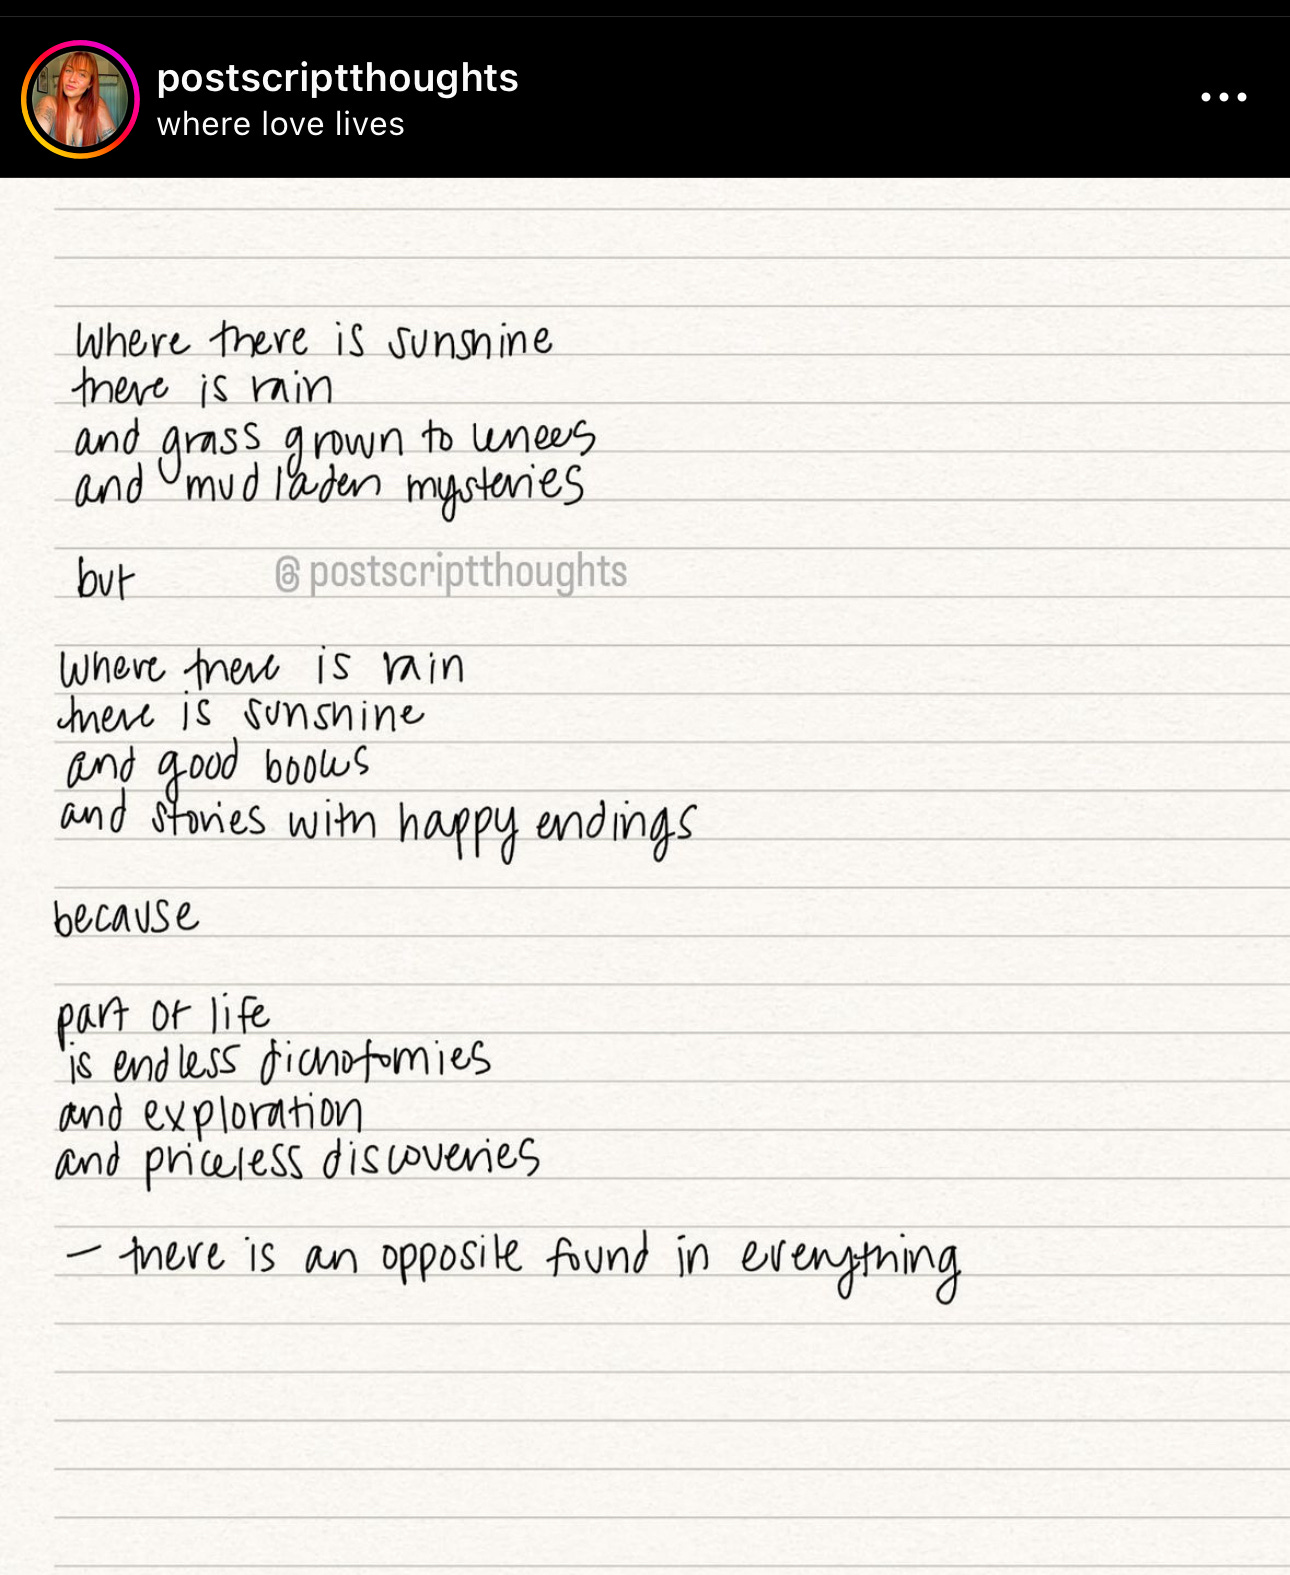 postscriptthoughts
where love lives
Where there is sunshine
there is rain
and grass grown to knees
and mud laden mysteries
but
@postscriptthoughts
Where there is rain
there is sunshine
and good books
and stories with happy endings
because
part of life
is endless dichotomies
and exploration
and priceless discoveries
– there is an opposite found in everything